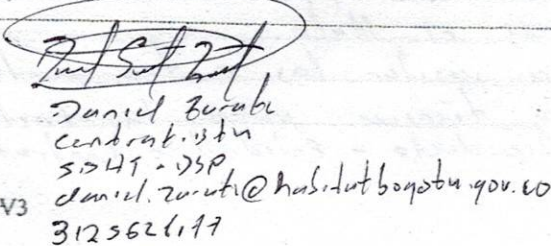 Daniel Zarate
contratista
SDHT - DSP
V3 daniel.zarate@habitatbogota.gov.co